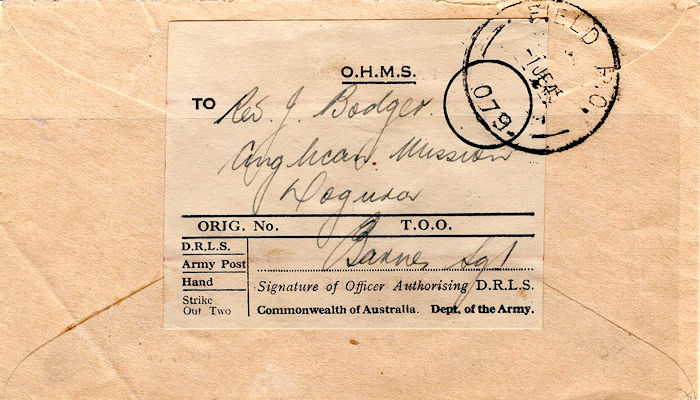 FIELD P.O.
079
O.H.M.S.
TO Rev. J. Bodger.
Anglican. Mission
Dogura
ORIG. No. T.O.O.
D.R.L.S.
Army Post
Hand
Strike
Out Two
Barnes Sgt
Signature of Officer Authorising D.R.L.S.
Commonwealth of Australia. Dept. of the Army.